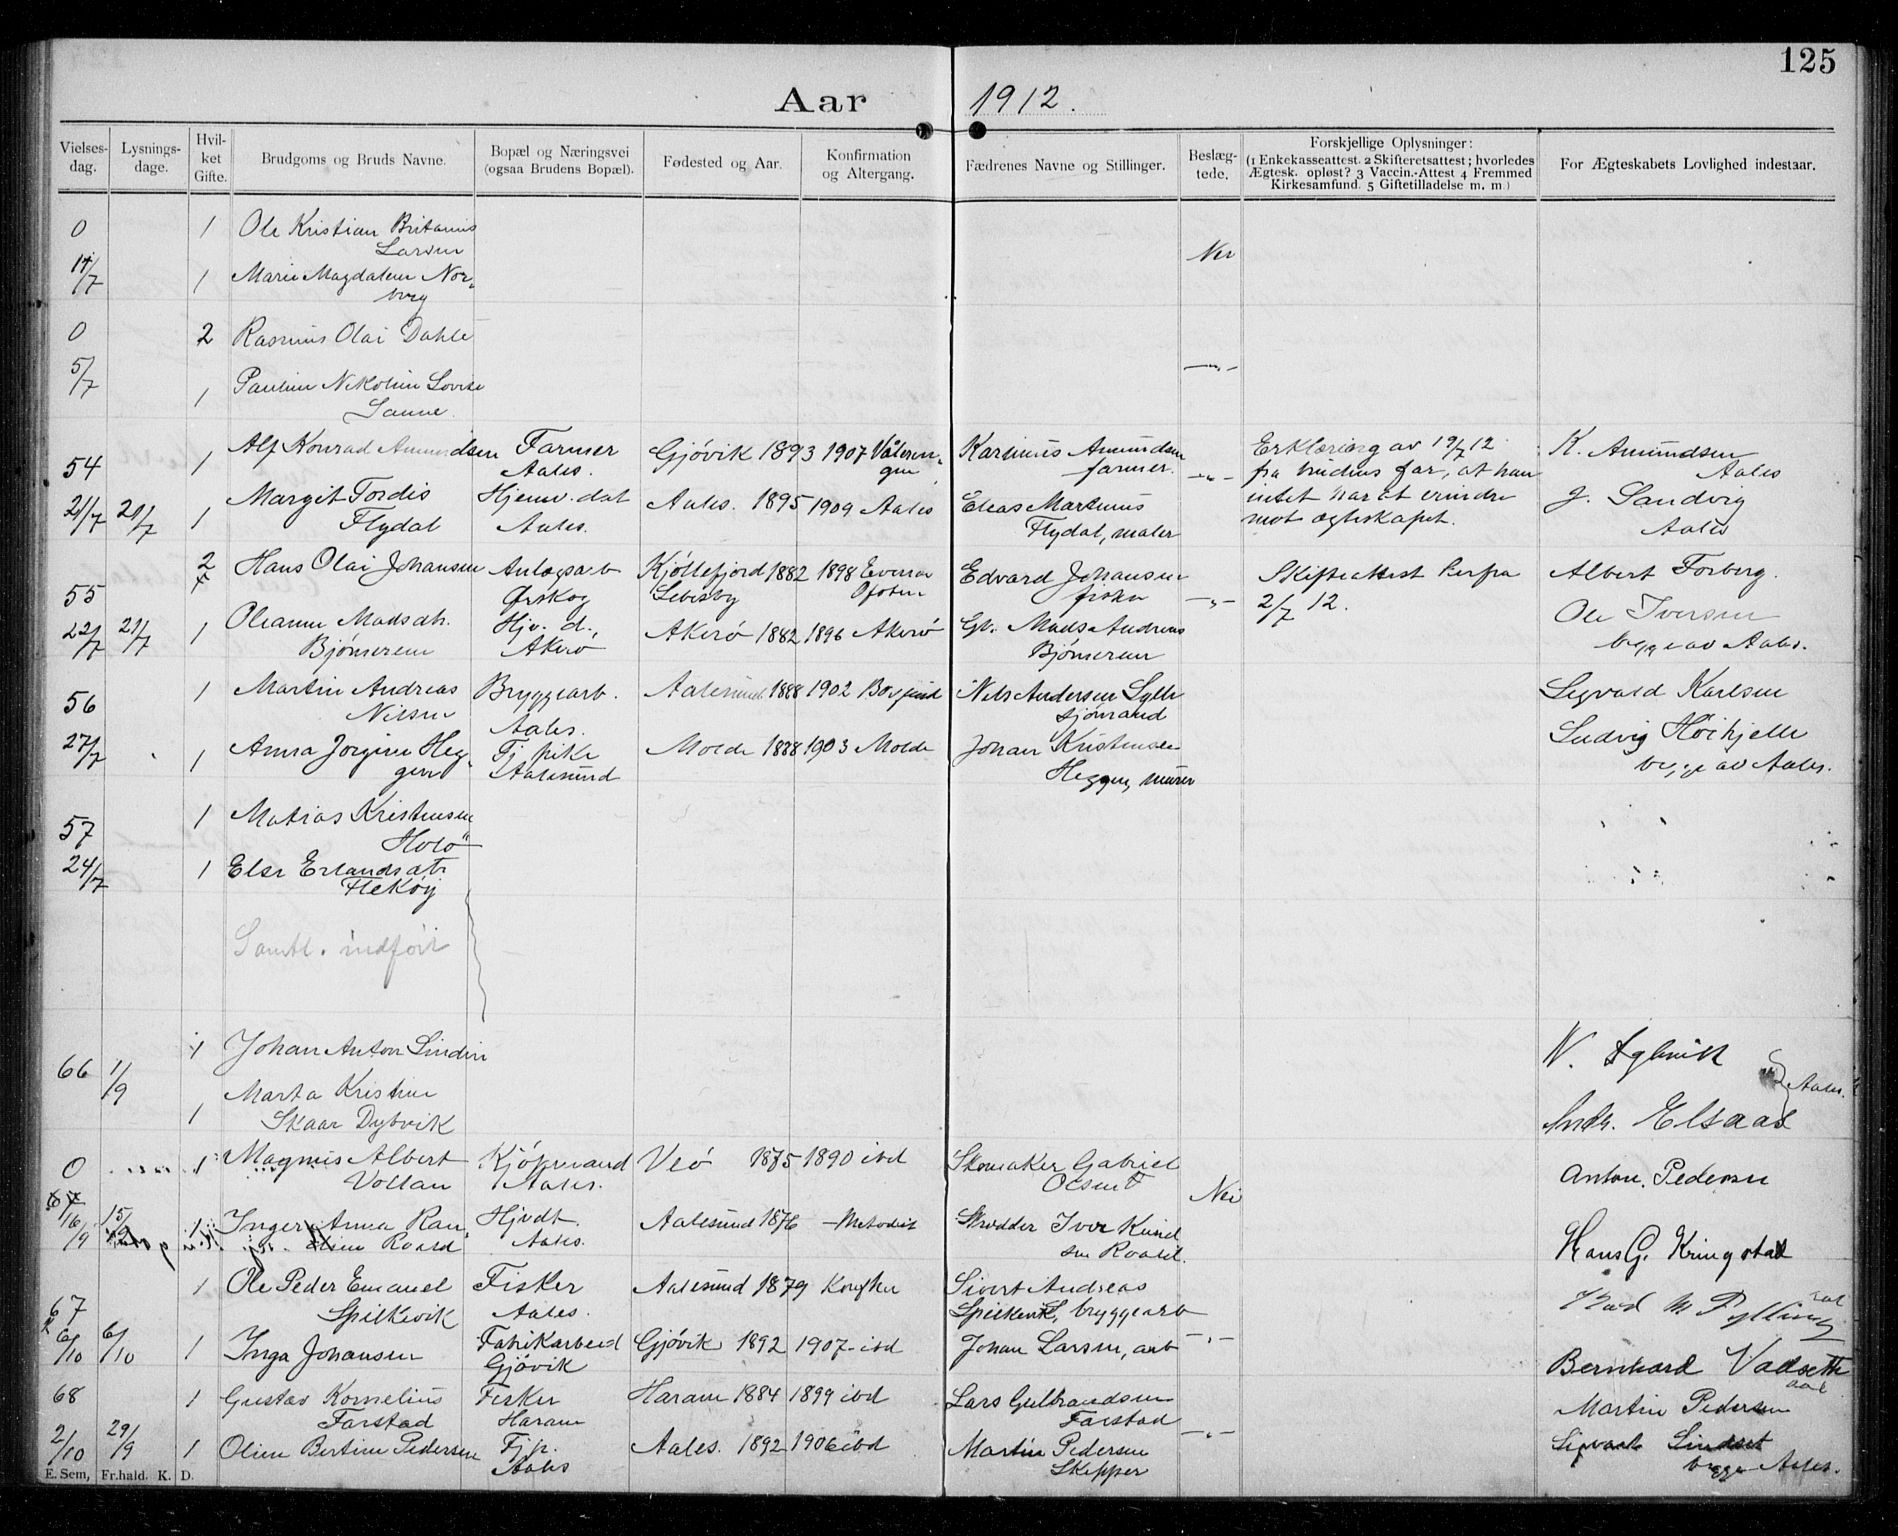 125
Aar 1912.
Vielses-dag. Lysnings-dage. Hvil-ket Gifte. Brudgoms og Bruds Navne. Bopæl og Næringsvei (ogsaa Brudens Bopæl). Fødested og Aar. Konfirmation og Altergang. Fædrenes Navne og Stillinger. Beslæg-tede. Forskjellige Oplysninger: (1 Enkekasseattest. 2 Skifteretsattest; hvorledes Ægtesk. opløst? 3 Vaccin.-Attest 4 Fremmed Kirkesamfund. 5 Giftetilladelse m. m) For Ægteskabets Lovlighed indestaar.
0 1 Ole Kristian Britanius
Larsen
Nei
14/7 1 Marie Magdalene Nor-
berg
0 2 Rasmus Olai Dahle
5/7 1 Pauline Nikoline Lovise
Sanne.
—"—
54 1 Alf Konrad Amundsen Farmer Gjövik 1893 1907 Våleren- Karinius Amundsen Erklæring av 19/7 12 K. Amundsen
Aales. gen farmer. —"— fra brudens far, at han Aales
21/7 21/7 1 Margit Tordis Hjem. dat Aales. 1895 1909 Aales Eleas Martinus intet har at erindre J. Sandvig
Flydal Aales. Flydal, maler mot ægteskapet. Aales
55 2 Hans Olai Johansen Anlægsarb Kjöllefjord 1882 1898 Evenes Edvard Johansen Skifteattest herfra Albert Forberg.
Ørskog Lebesby Ofoten fisker —"— 2/7 12.
22/7 21/7 1 Oleanna Madsdtr. Hjv. d., Akerö 1882 1896 Akerö Gb. Mads Andreas Ole Iversen
Bjönnerem Akerö Bjönnerem begge av Aales.
56 1 Martin Andreas Bryggearb. Aalesund 1888 1902 Borgund Nils Andersen Sylte Sigvald Karlsen
Nilsen Aales. sjömand
27/7 1 Anna Jörgine Heg- Tj pike Molde 1888 1903 Molde Johan Kristensen Ludvig Höihjelle
gen Aalesund Heggen, murer begge av Aales.
57 1 Matias Kristensen
Holö
24/7 1 Else Erlandsdtr
Fleköy
Samtl. indfört
66 1/9 1 Johan Anton Linden N. Dybvik
Marta Kristine Aales.
1 Skaar Dybvik Andr. Elsaas
0 1 Magnus Albert Kjöpmand Veö 1875 1890 ibd Skomaker Gabriel Anton. Pedersen
Vollan Aales. Olsen † Nei
16/9 15/9 1 Inger Anna Rau- Hjvdt. Aalesund 1876 —Metodist Skrædder Iver Knud
line Roald Aales. sen Roald. Hans G. Kringstad
67 1 Ole Peder Emanuel Fisker Aalesund 1879 Konf her Sivert Andreas
Spilkevik Aales. Spilkevik, bryggearb
6/10 6/10 1 Inga Johansen Fabrikarbeid Gjövik 1892 1907 ibd Johan Larsen, arb —"—
Gjövik Bernhard Vadseth
68 1 Gustav Kornelius Fisker Haram 1884 1899 ibd Lars Gulbrandsen Martin Pedersen
Farstad Haram Farstad
2/10 29/9 1 Oline Bertine Pedersen Tjp. Aales. 1892 1906 ibd Martin Pedersen —"— Sigvart Lindset
Aales Skipper begge Aales.
E. Sem, Fr.hald. K. D.